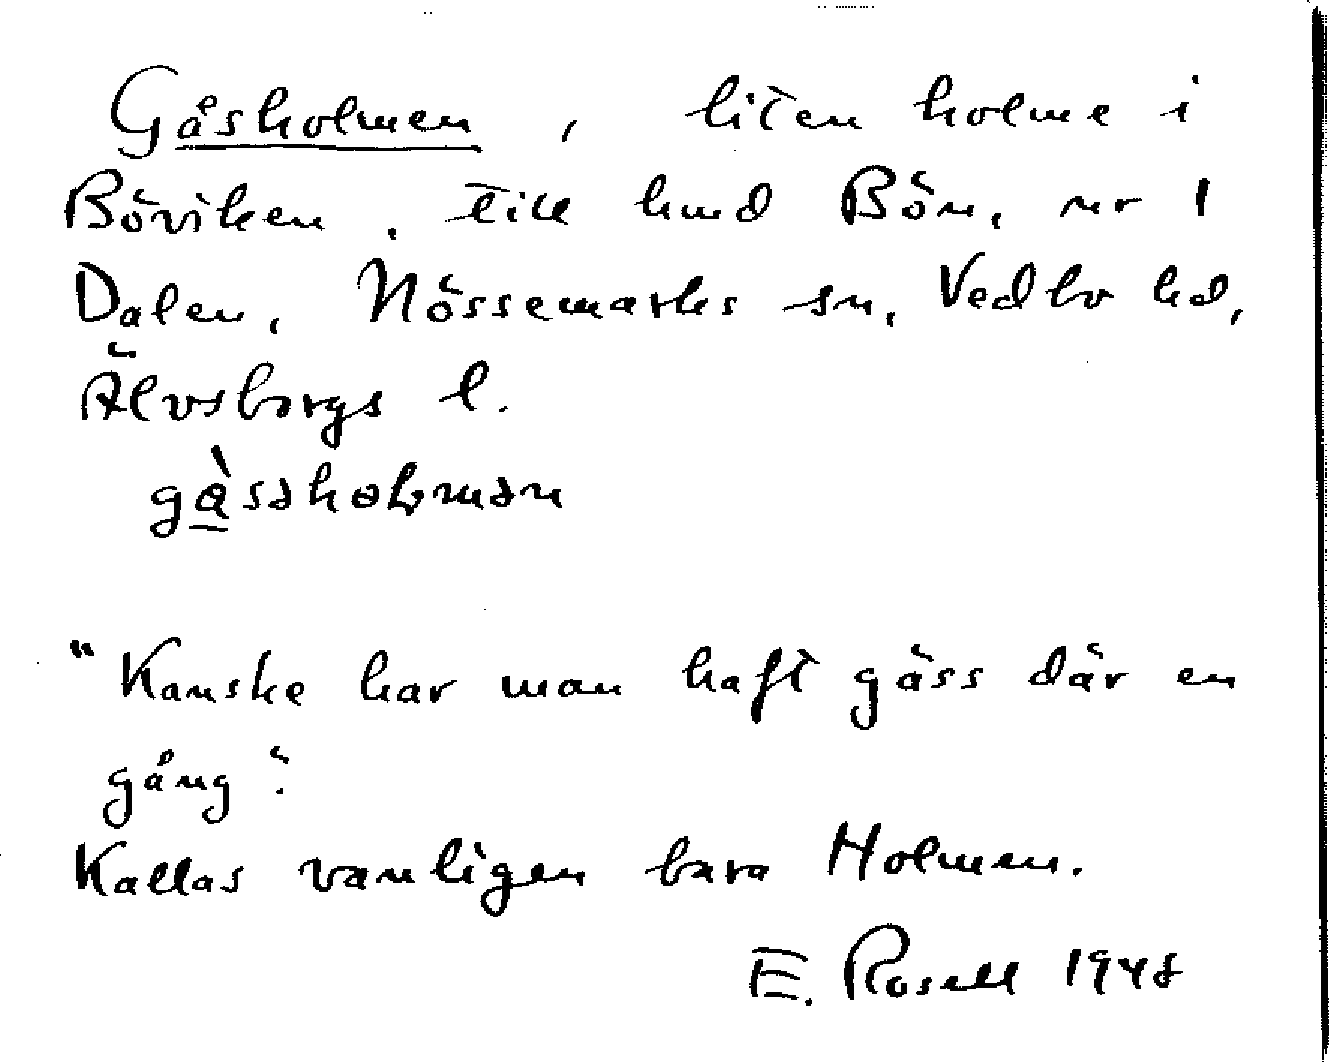 Gåsholmen, liten holme i
Böviken, till hmd Bön, nr 1
Dalen, Nössemarks sn, Vedbo hd,
Älvsborgs l.
"Kanske har man haft gäss där en
gång".
Kallas vanligen bara Holmen.
E. Rosell 1948